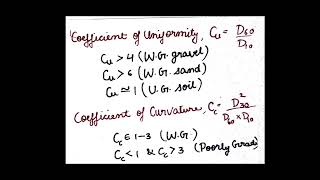 Coefficient of Uniformity, Cu = D60/D10
Cu > 4 (W.G. gravel)
Cu > 6 (W.G. sand)
Cu ≅ 1 (U.G. soil)
Coefficient of Curvature, Cc = D30²/D60 × D10
Cc ∈ 1-3 (W.G.)
Cc < 1 & Cc > 3 (Poorly Grade